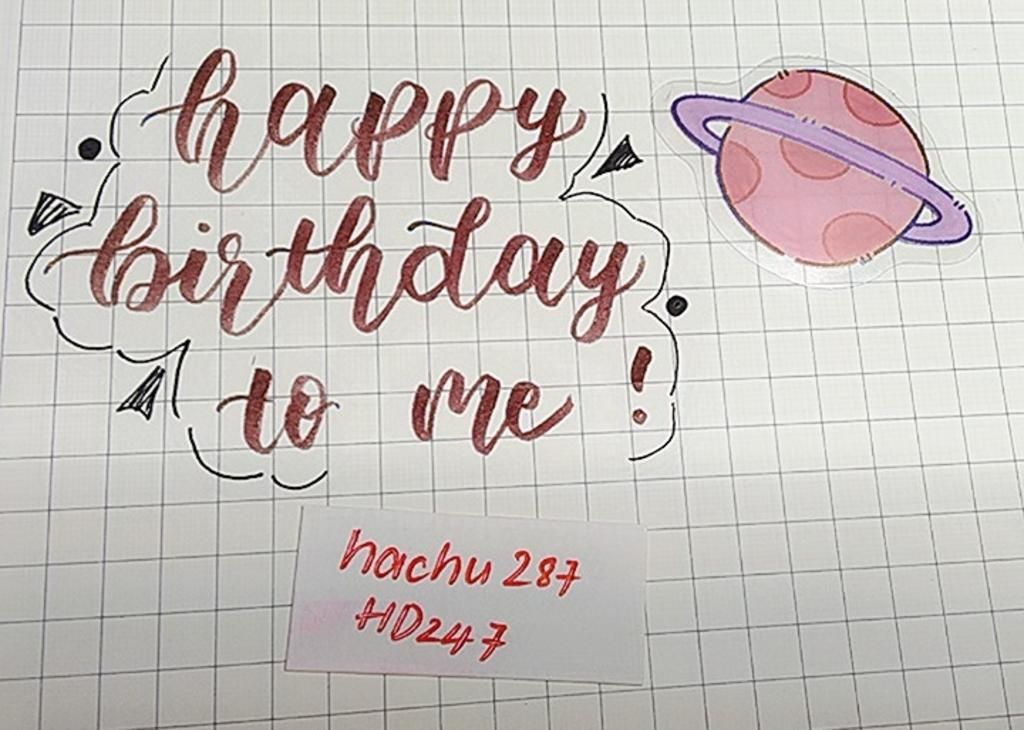 happy
birthday
to me !
hachu 287
HD247